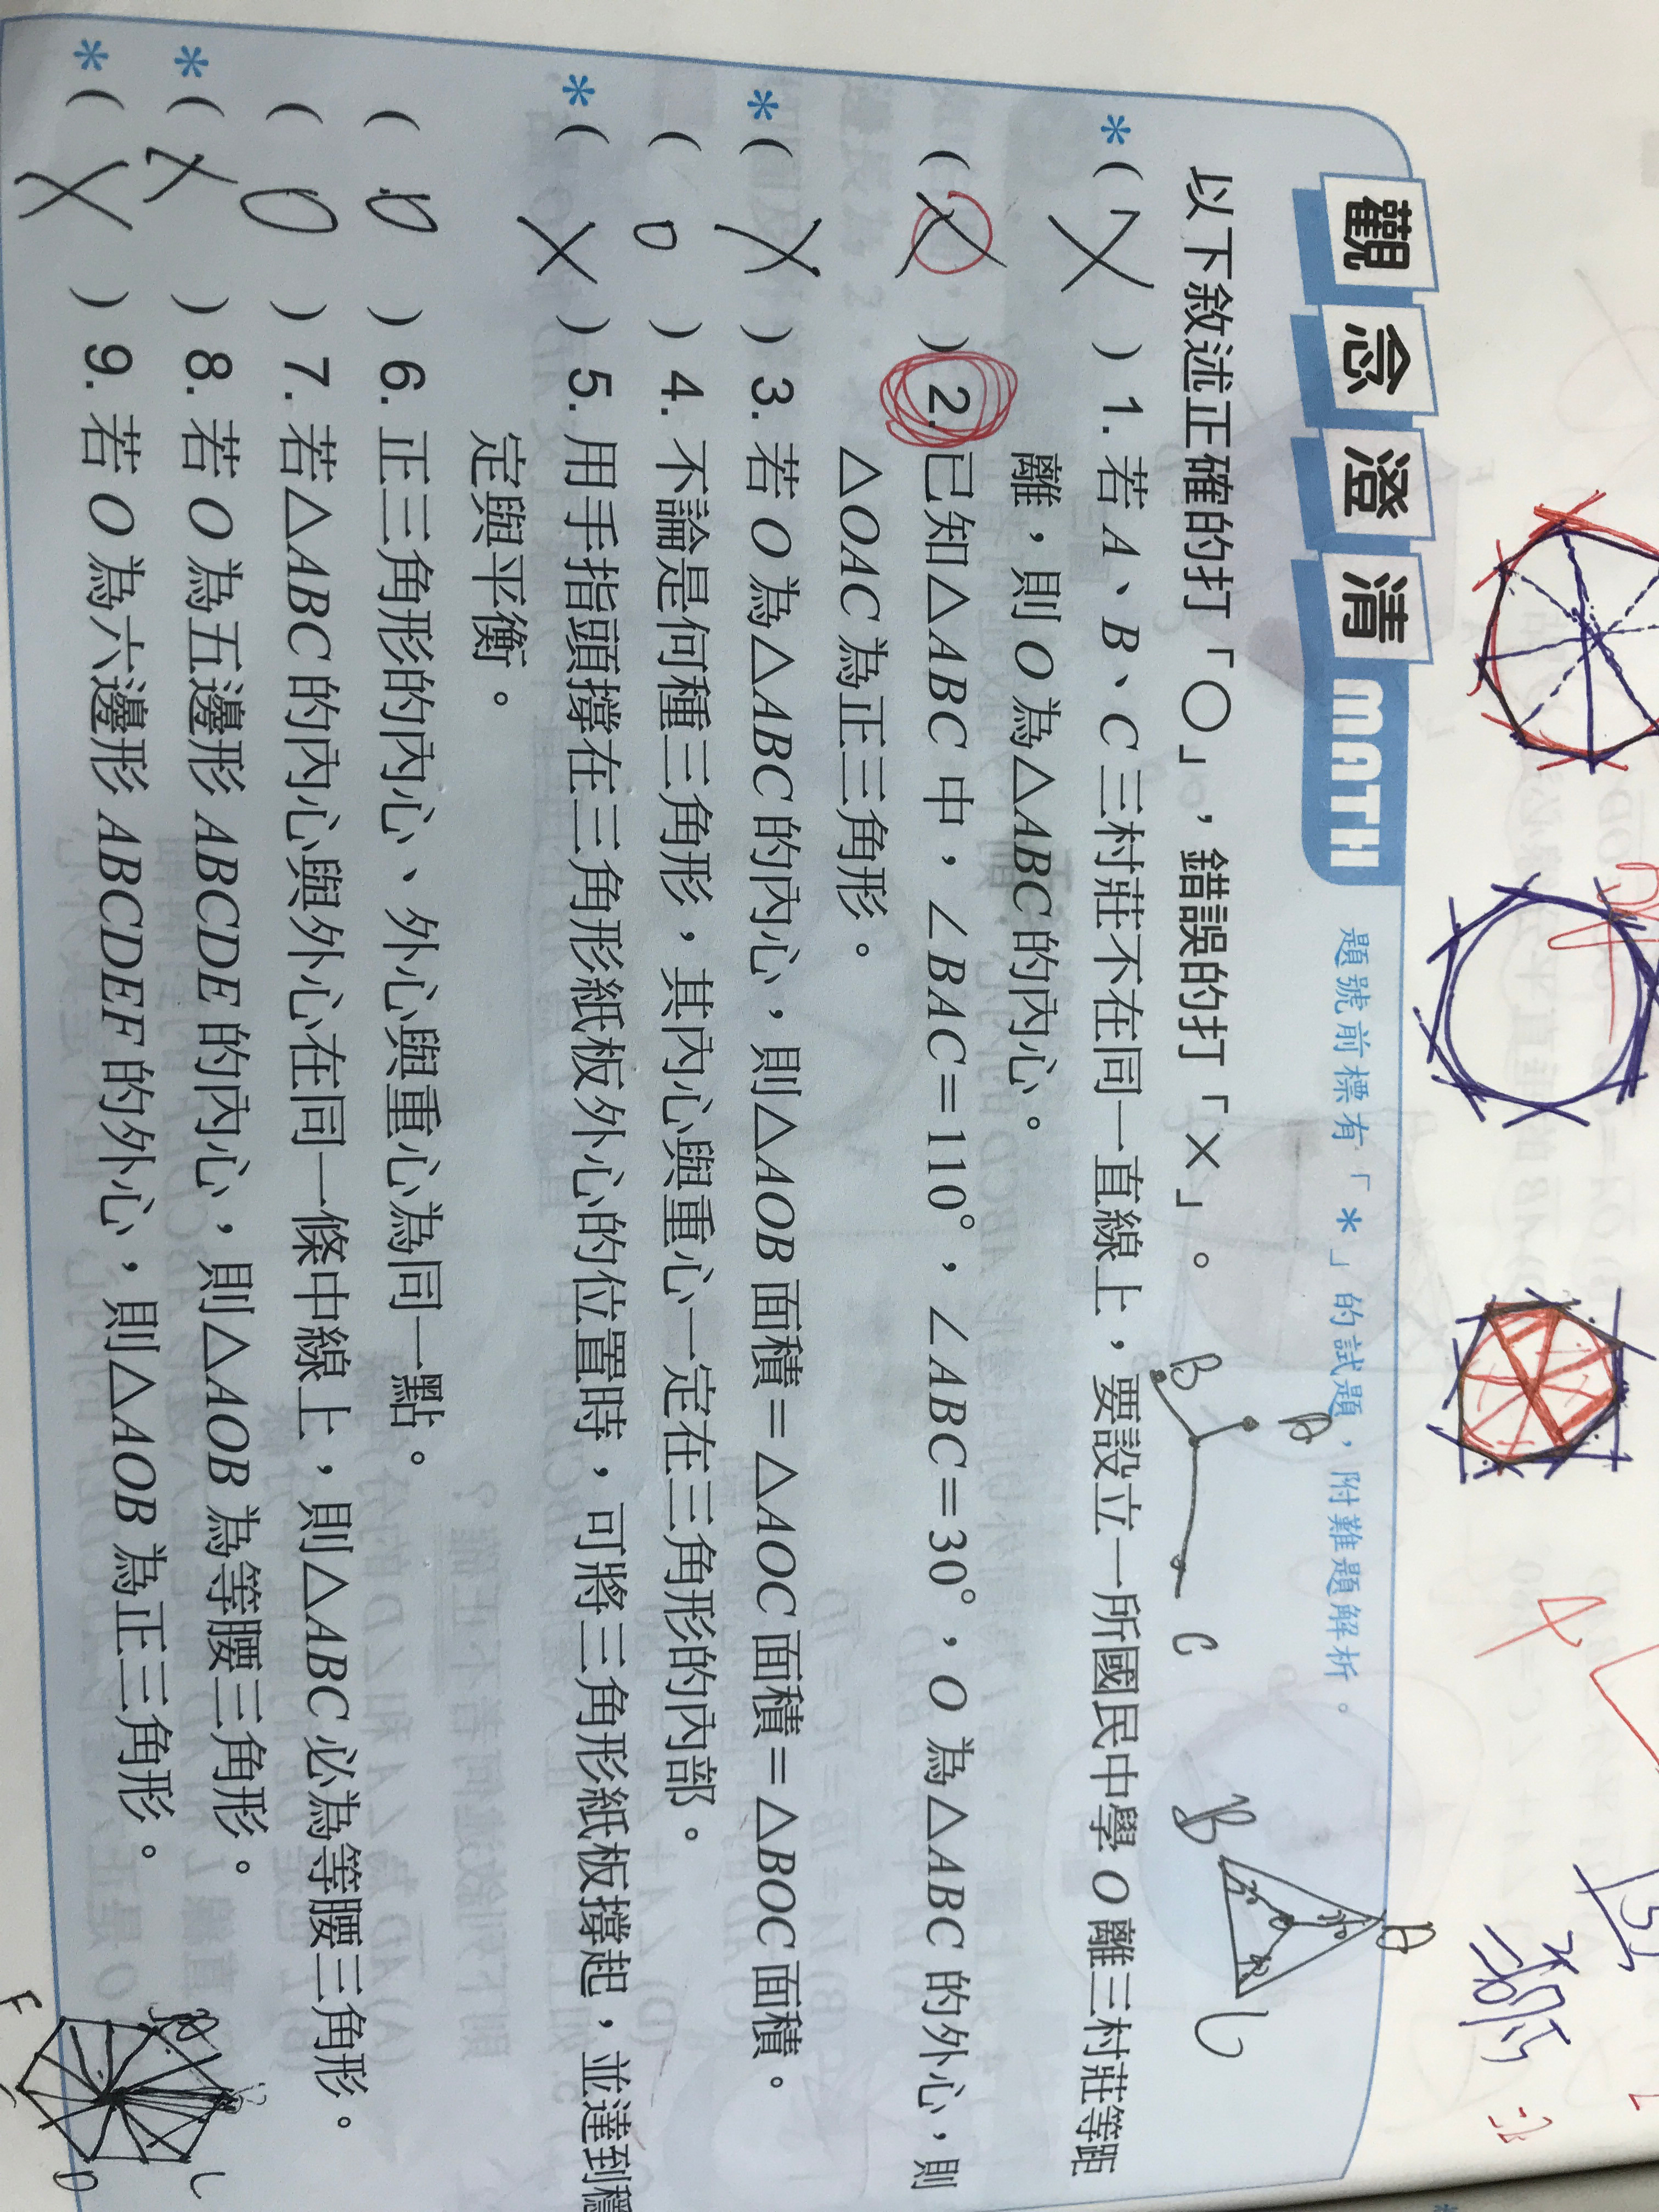 觀念澄清 MATH 題號前標有「*」的試題，附難題解析。
以下敘述正確的打「○」，錯誤的打「×」。
B
B
C
A
B
C
*( X ) 1. 若 A、B、C 三村莊不在同一直線上，要設立一所國民中學 O 離三村莊等距
離，則 O 為△ABC 的內心。
( X ) 2. 已知△ABC 中，∠BAC＝110°，∠ABC＝30°，O 為△ABC 的外心，則
△OAC 為正三角形。
*( X ) 3. 若 O 為△ABC 的內心，則△AOB 面積＝△AOC 面積＝△BOC 面積。
( O ) 4. 不論是何種三角形，其內心與重心一定在三角形的內部。
*( X ) 5. 用手指頭撐在三角形紙板外心的位置時，可將三角形紙板撐起，並達到穩
定與平衡。
( O ) 6. 正三角形的內心、外心與重心為同一點。
( O ) 7. 若△ABC 的內心與外心在同一條中線上，則△ABC 必為等腰三角形。
*( X ) 8. 若 O 為五邊形 ABCDE 的內心，則△AOB 為等腰三角形。
*( X ) 9. 若 O 為六邊形 ABCDEF 的外心，則△AOB 為正三角形。
F
D